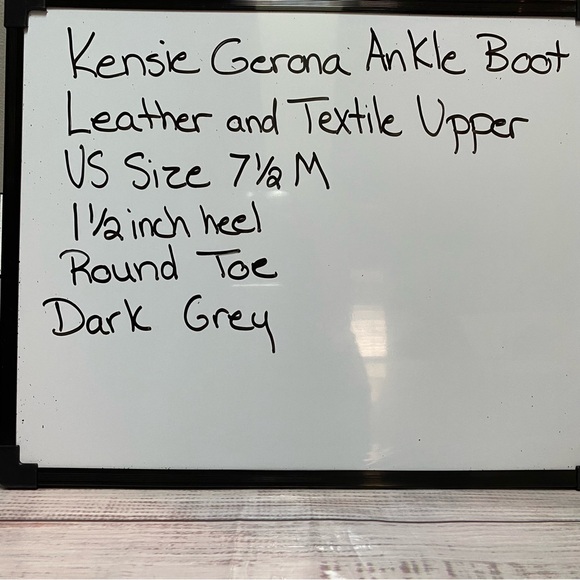 Kensie Gerona Ankle Boot
Leather and Textile Upper
US Size 7½ M
1½ inch heel
Round Toe
Dark Grey